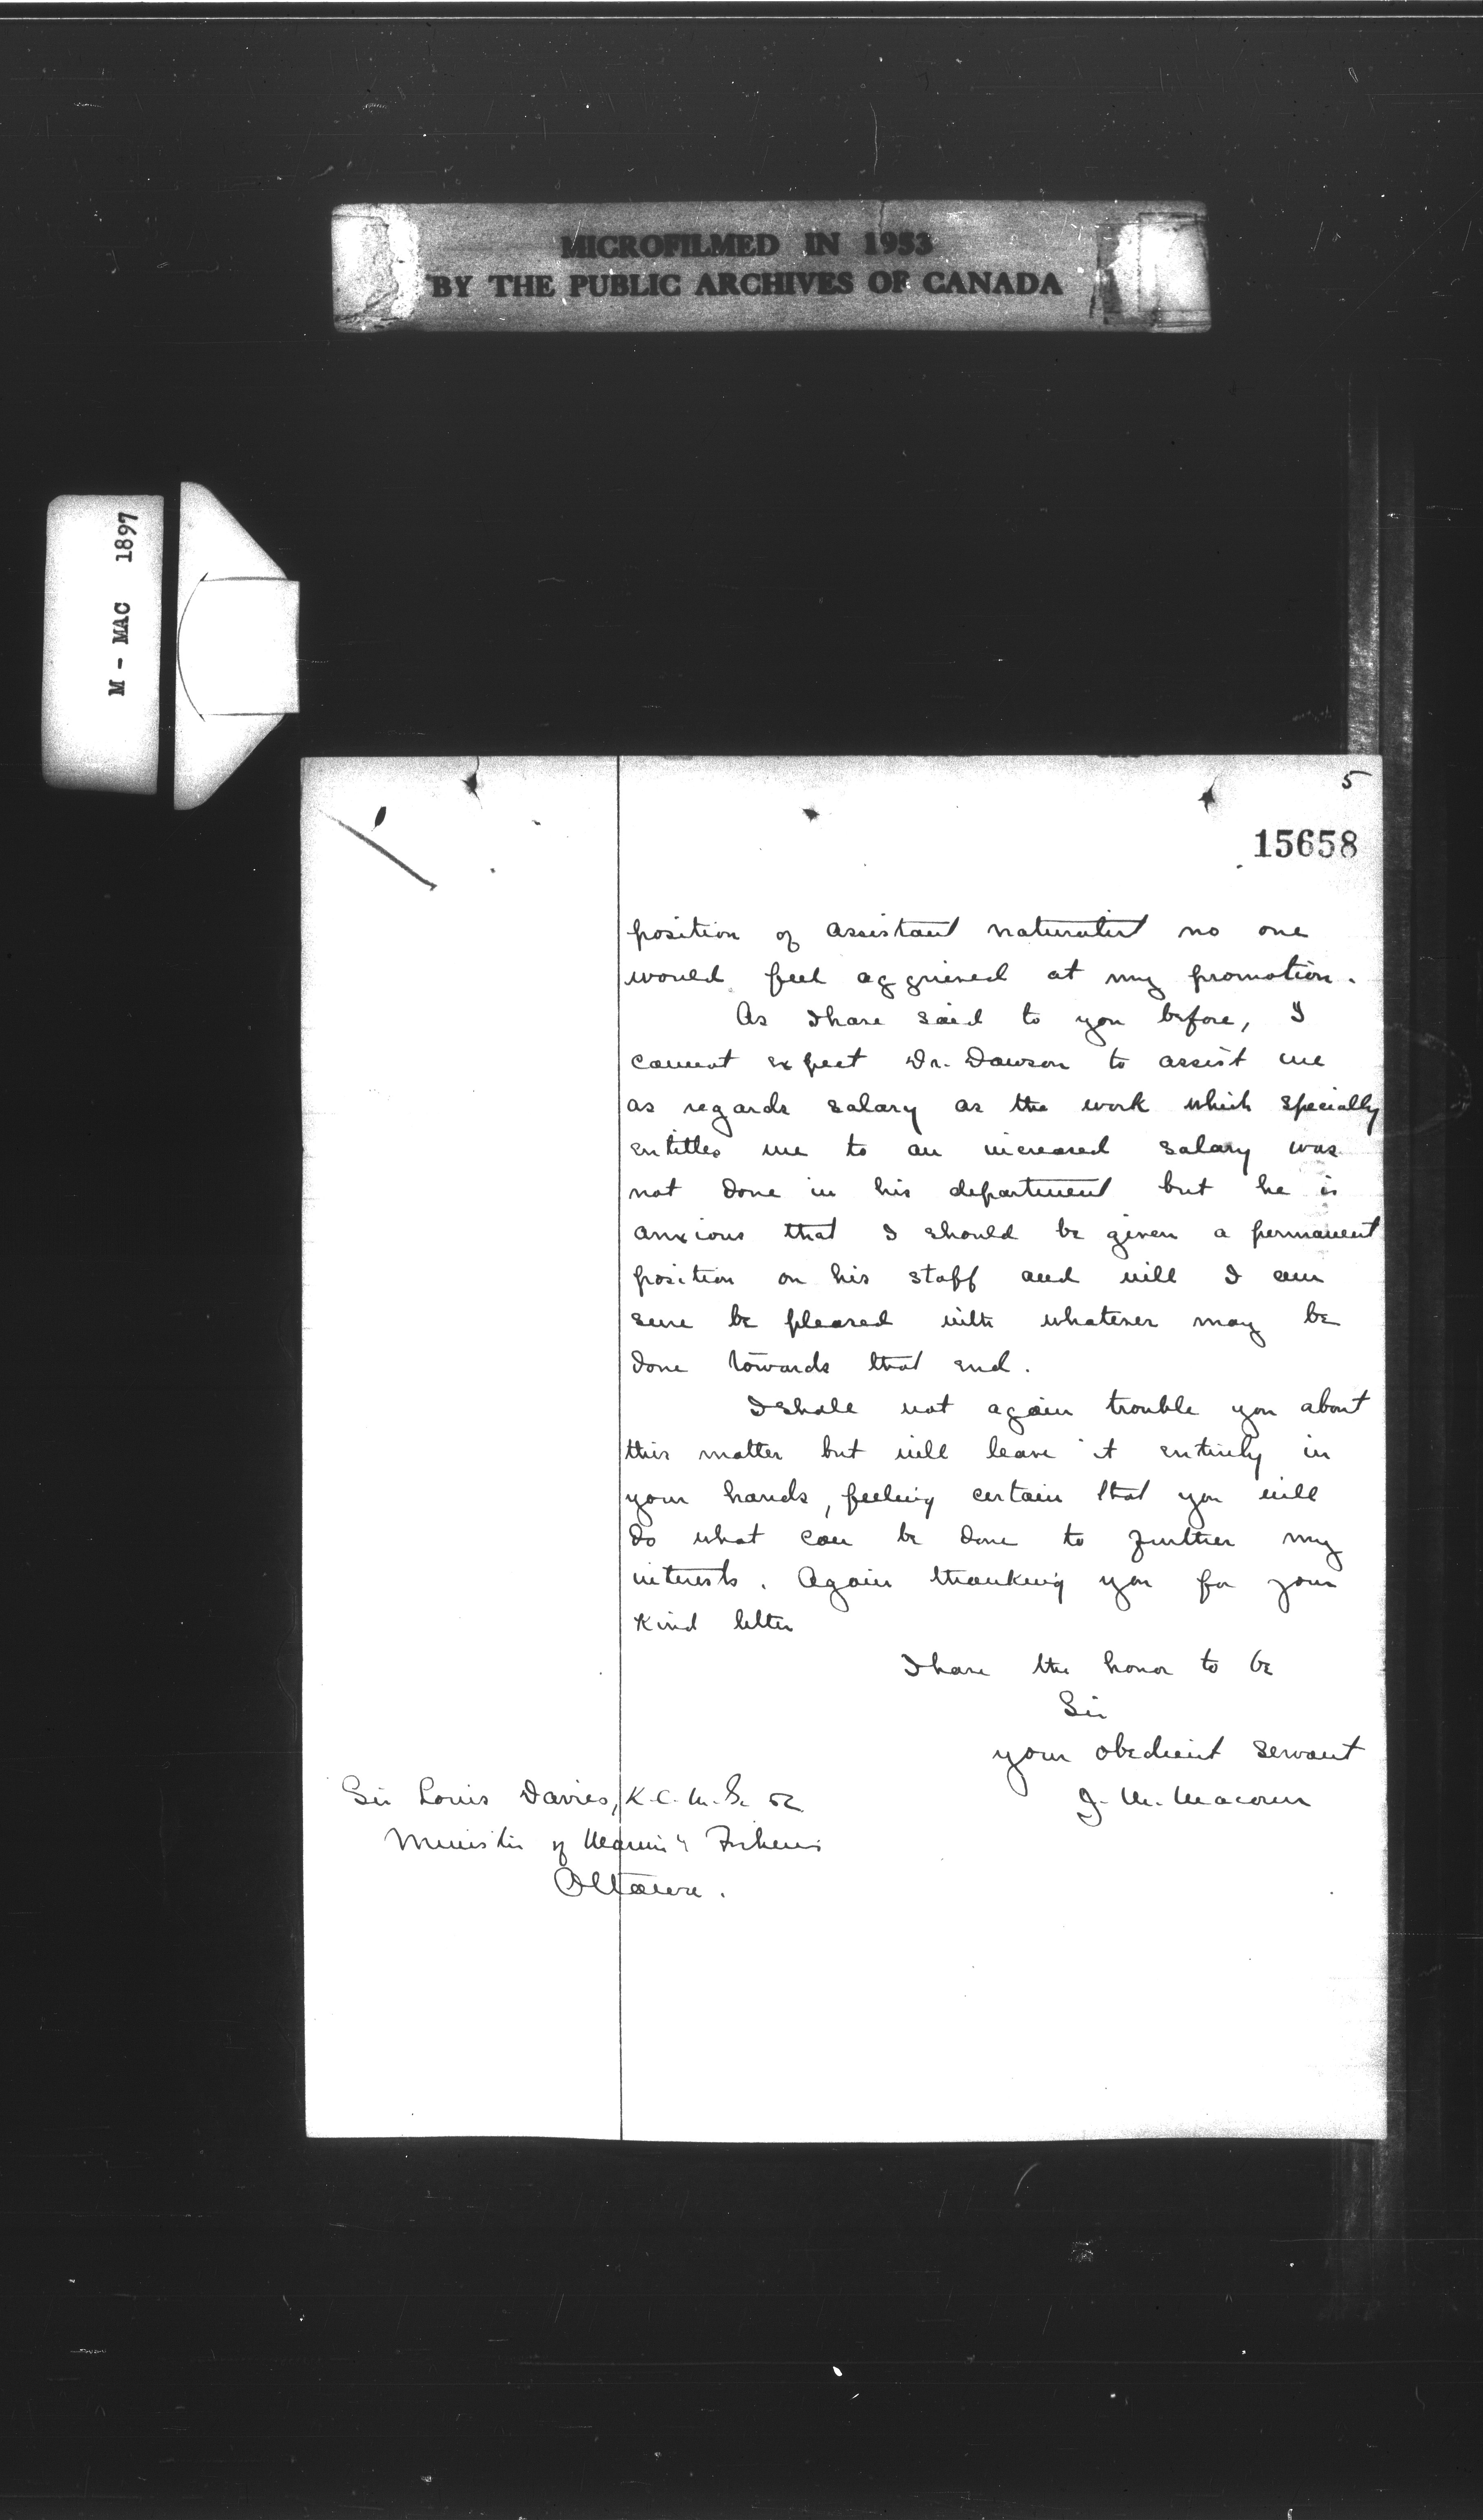 MICROFILMED IN 1953
BY THE PUBLIC ARCHIVES OF CANADA
M - MAC 1897
5
15658
position of assistant naturalist no one
would feel aggrieved at my promotion.
As I have said to you before, I
cannot expect Dr. Dawson to assist me
as regards salary as the work which specially
entitles me to an increased salary was
not done in his department but he is
anxious that I should be given a permanent
position on his staff and will I am
sure be pleased with whatever may be
done towards that end.
I shall not again trouble you about
this matter but will leave it entirely in
your hands, feeling certain that you will
do what can be done to further my
interests. Again thanking you for your
kind letter
I have the honor to be
Sir
your obedient servant
J. M. Macoun
Sir Louis Davies, K.C.M.G.
Minister of Marine & Fisheries
Ottawa.